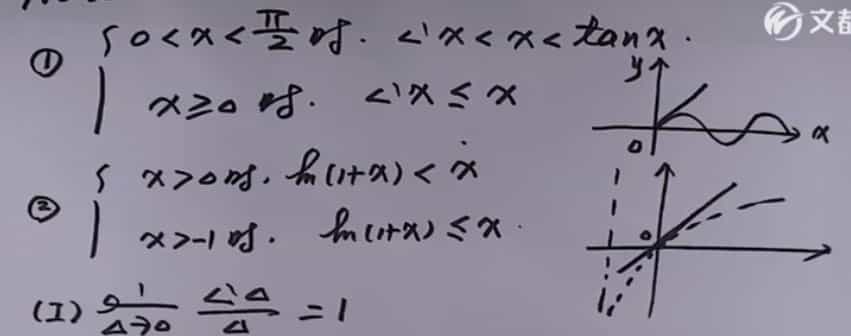 文都
① { 0 < x < π/2 时. sin x < x < tan x.
x ≥ 0 时. sin x ≤ x
y
0
x
② { x > 0 时. ln(1+x) < x
x > -1 时. ln(1+x) ≤ x.
0
(I) lim Δ→0 sin Δ / Δ = 1